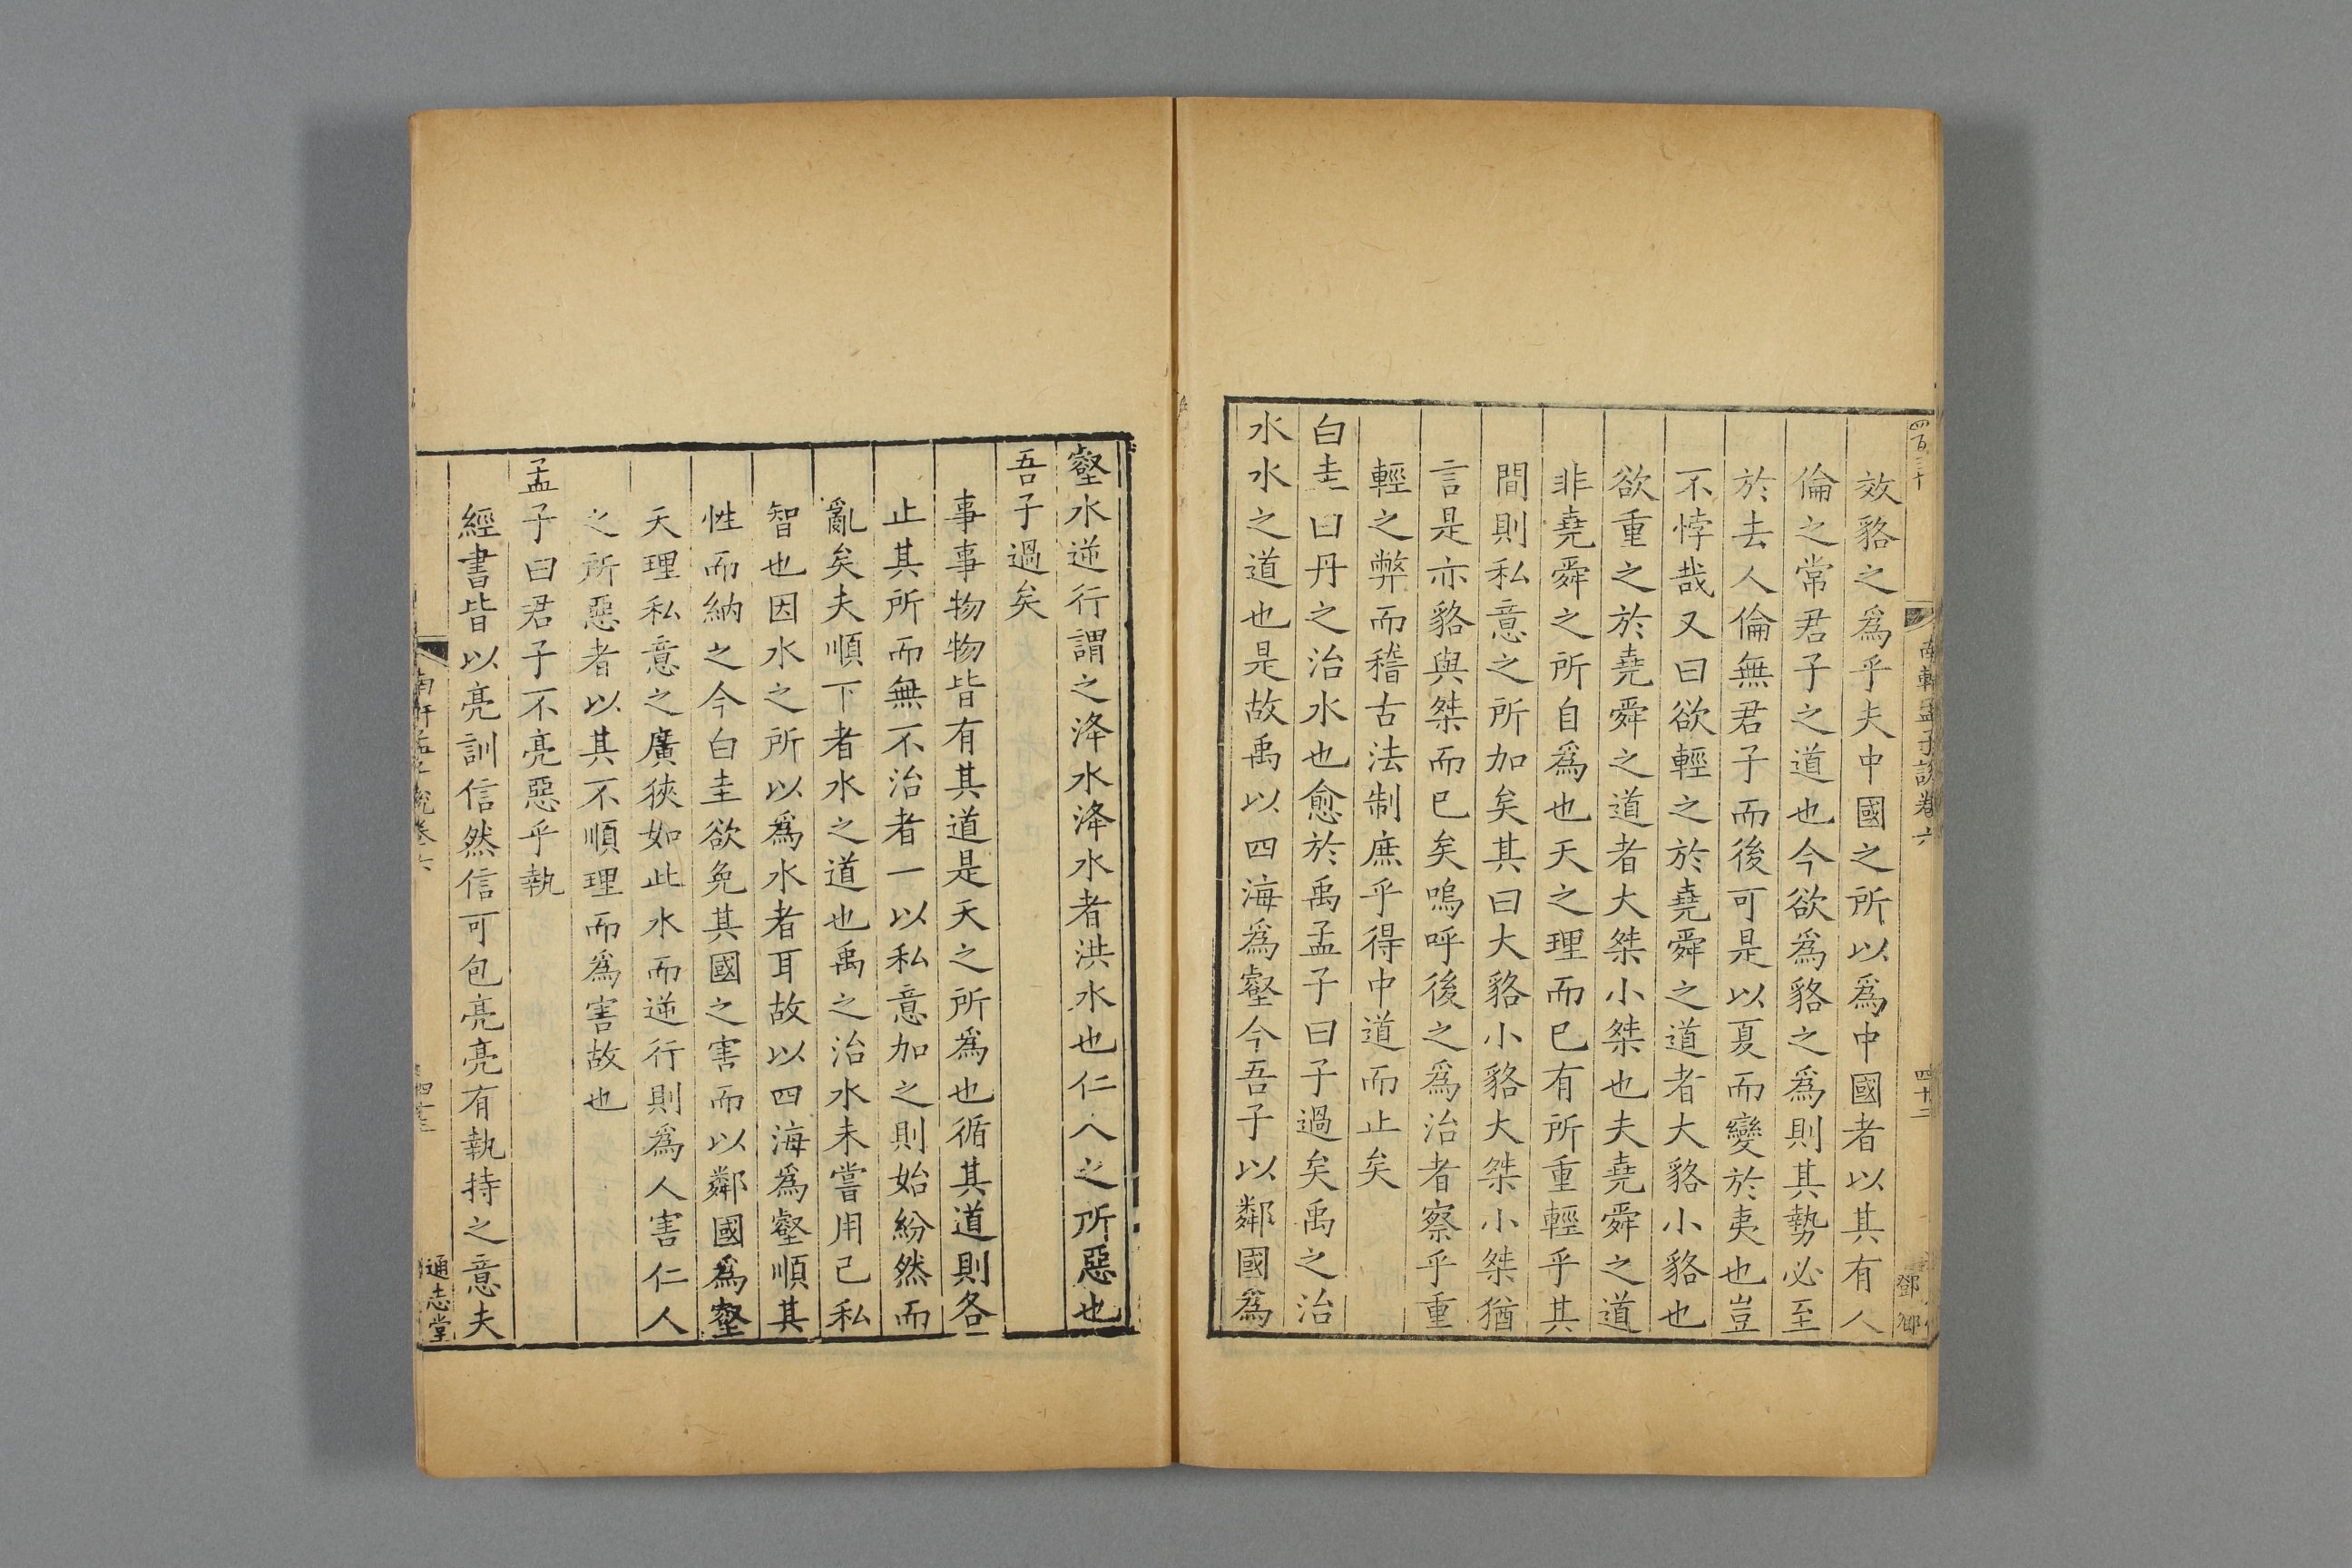 四百三十
南軒孟子說卷六
四十二
鄧
效貉之爲乎夫中國之所以爲中國者以其有人
倫之常君子之道也今欲爲貉之爲則其勢必至
於去人倫無君子而後可是以夏而變於夷也豈
不悖哉又曰欲輕之於堯舜之道者大貉小貉也
欲重之於堯舜之道者大桀小桀也夫堯舜之道
非堯舜之所自爲也天之理而已有所重輕乎其
間則私意之所加矣其曰大貉小貉大桀小桀猶
言是亦貉與桀而已矣嗚呼後之爲治者察乎重
輕之弊而稽古法制庶乎得中道而止矣
白圭曰丹之治水也愈於禹孟子曰子過矣禹之治
水水之道也是故禹以四海爲壑今吾子以鄰國爲
壑水逆行謂之洚水洚水者洪水也仁人之所惡也
吾子過矣
事事物物皆有其道是天之所爲也循其道則各
止其所而無不治者一以私意加之則始紛然而
亂矣夫順下者水之道也禹之治水未嘗用己私
智也因水之所以爲水者耳故以四海爲壑順其
性而納之今白圭欲免其國之害而以鄰國爲壑
天理私意之廣狹如此水而逆行則爲人害仁人
之所惡者以其不順理而爲害故也
孟子曰君子不亮惡乎執
經書皆以亮訓信然信可包亮亮有執持之意夫
南軒孟子說卷六
四十三
通志堂